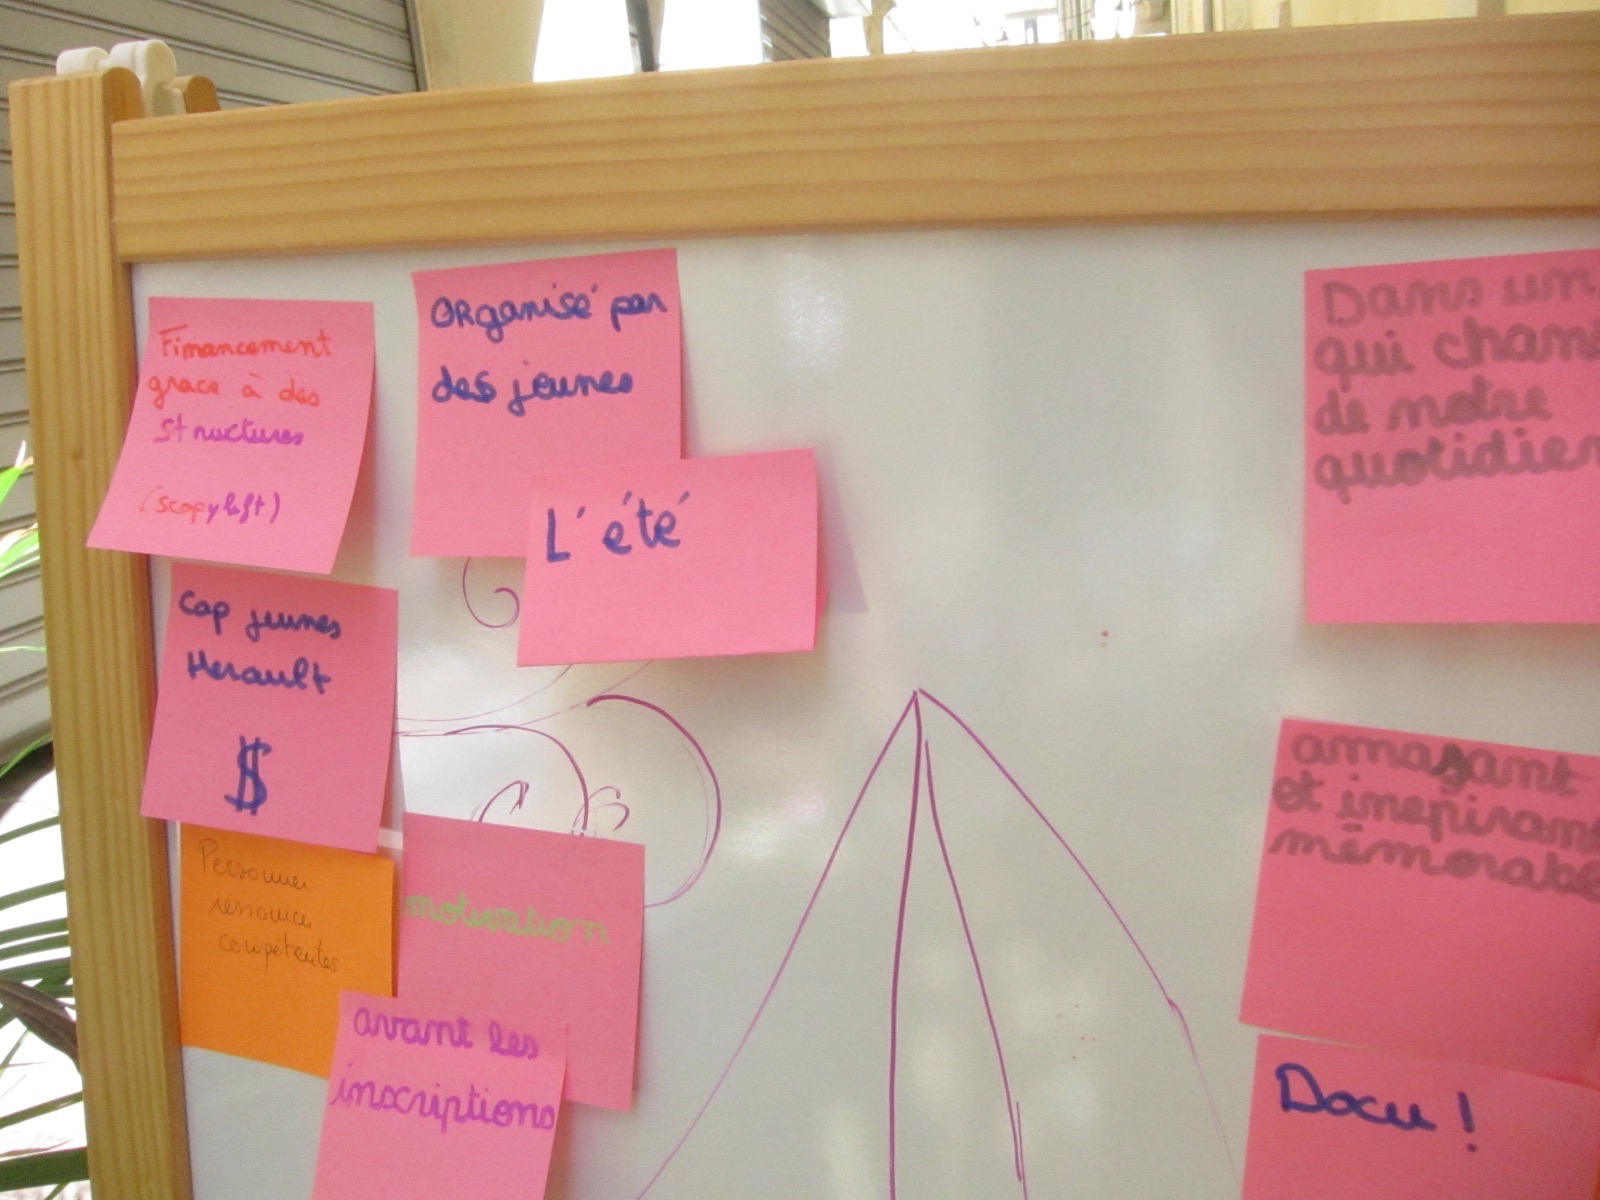 Financement
grace à des
structures
(scopyleft)
Organisé par
des jeunes
L'été
Cap jeunes
Herault
$
Personnes
ressources
compétentes
motivation
avant les
inscriptions
Dans un
qui chan
de notre
quotidien
amusant
et inspirant
mémorable
Docu !